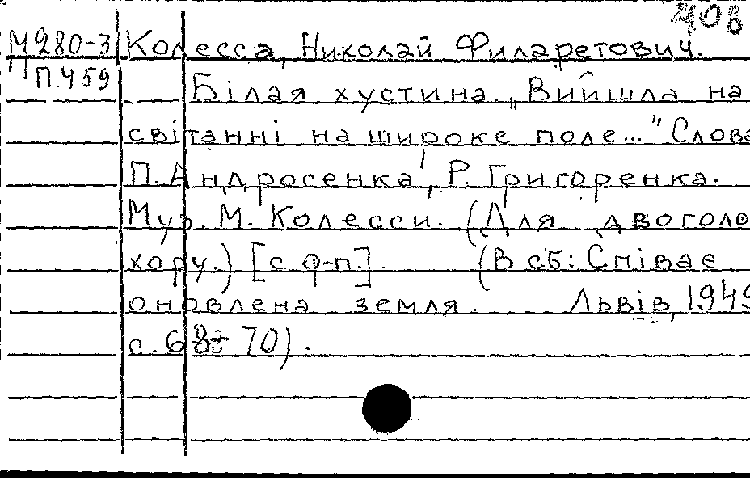 408
М280-3 Колесса, Николай Филаретович.
П.459
Білая хустина „Вийшла на
світанні на широке поле..." Слова
П. Андросенка, Р. Григоренка.
Муз. М. Колесси. (Для двоголо
хору.) [с ф-п.] (В сб: Співає
оновлена земля. Львів, 1949
с. 68-70).